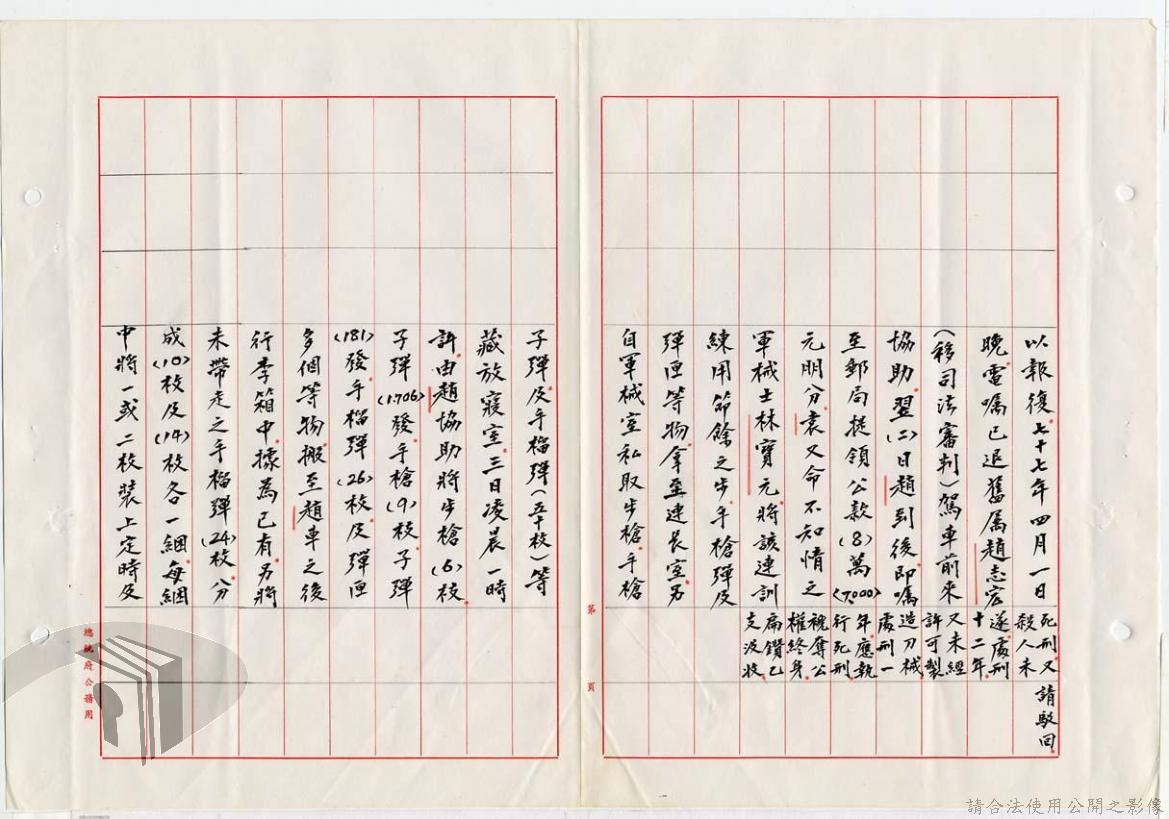 以報復。七十七年四月一日
晚電囑已退舊属趙志宏
(移司法審判)駕車前來
協助。翌(二)日趙到後即囑
至郵局提領公款(8)萬(7000)
元朋分。袁又命不知情之
軍械士林寶元。將該連訓
練用節餘之步。手槍彈及
彈匣等物。拿至連長室。另
自軍械室私取步槍。手槍
死刑。又
殺人未
遂處刑
十二年。
又未經
許可製
造刀械
處刑一
年。應執
行死刑
褫奪公
權終身。
扁鑽乙
支沒收
請駁回。
第
頁
子彈。及手榴彈(五十枚)等
藏放寢室。三日凌晨一時
許。由趙協助將步槍(6)枝。
子彈(1.706)發手槍(9)枝。子彈
(181)發。手榴彈(26)枚。及彈匣
多個等物。搬至趙車之後
行李箱中。據為己有。另將
未帶走之手榴彈(24)枚。分
成(10)枚及(14)枚各一綑。每綑
中將一或二枚裝上定時及
總統府公務用
請合法使用公開之影像